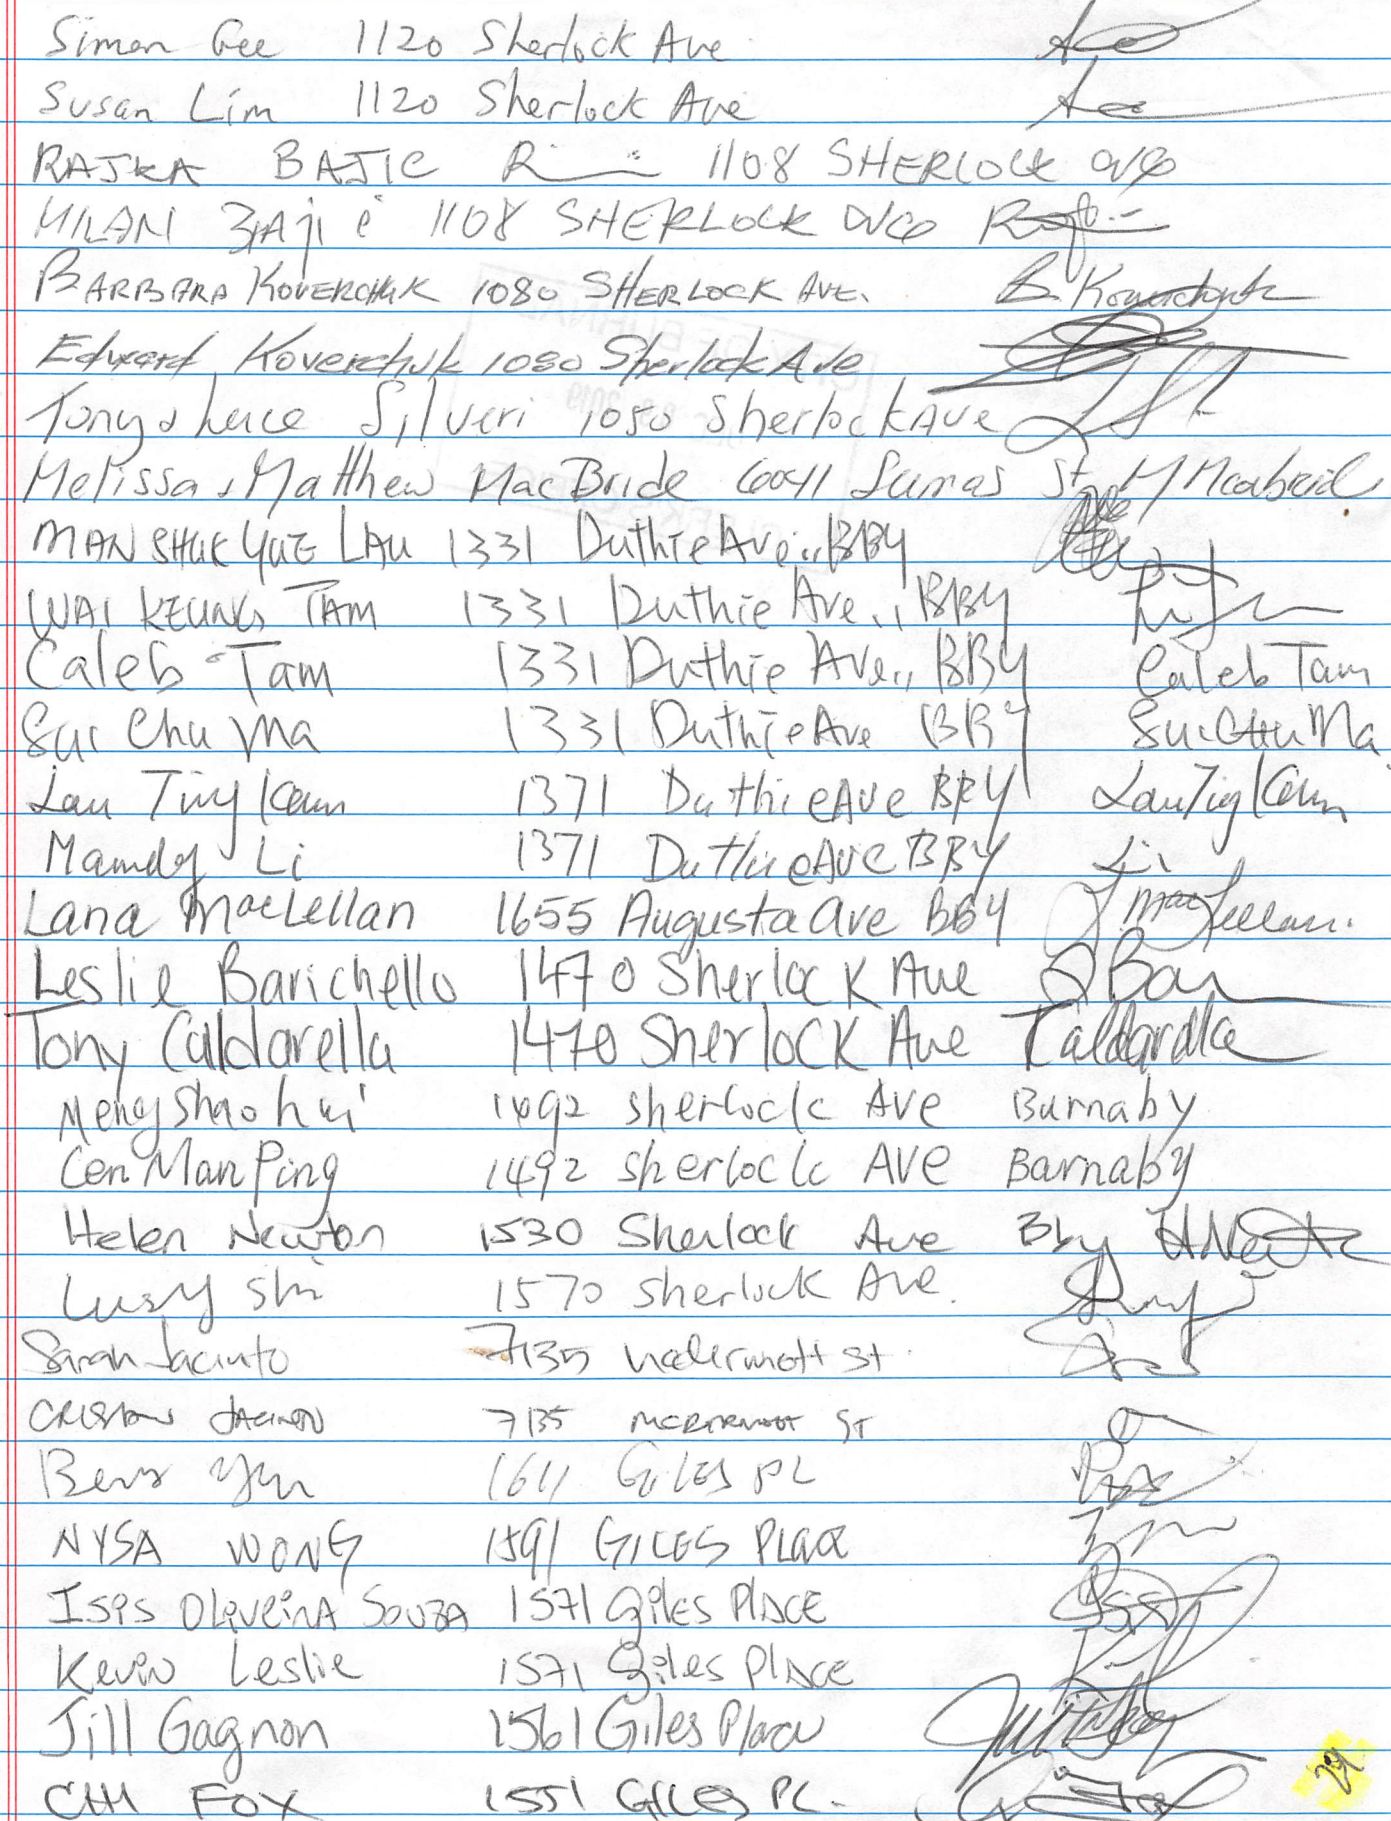 Simon Gee 1120 Sherlock Ave
Susan Lim 1120 Sherlock Ave
RAJKA BAJIC 1108 SHERLOCK
MILAN 1108 SHERLOCK
BARBARA KOVERCHUK 1080 SHERLOCK AVE. B. Koverchuk
Edward Koverchuk 1080 Sherlock Ave
Tony & Luce Silveri 1050 Sherlock Ave
Melissa & Matthew MacBride 6041 Sumas St
MAN SHUK YUE LAU 1331 Duthie Ave., BBY
WAI KEUNG TAM 1331 Duthie Ave., BBY
Caleb Tam 1331 Duthie Ave., BBY Caleb Tam
Sui Chu Ma 1331 Duthie Ave BBY Sui Chu Ma
Lau Ting Kam 1371 Duthie Ave BBY Lau Ting Kam
Mamdy Li 1371 Duthie Ave BBY Li
Lana MacLellan 1655 Augusta ave BBY
Leslie Barichello 1470 Sherlock Ave
Tony Caldarella 1470 Sherlock Ave T Caldarella
Meng Shao hui 1492 sherlock AVE Burnaby
Cen Man Ping 1492 sherlock AVE Barnaby
Helen Newton 1530 Sherlock Ave Bby
Lucy Shi 1570 Sherlock Ave.
Sarah Jacinto 7135 St
JACINTO 7135 MCDERMOTT ST
1611 GILES PL
NYSA WONG 1591 GILES PLACE
ISIS OLIVEIRA SOUZA 1571 Giles PLACE
Kevin Leslie 1571 Giles PLACE
Jill Gagnon 1561 Giles Place
CHI FOX 1551 GILES PL.
29